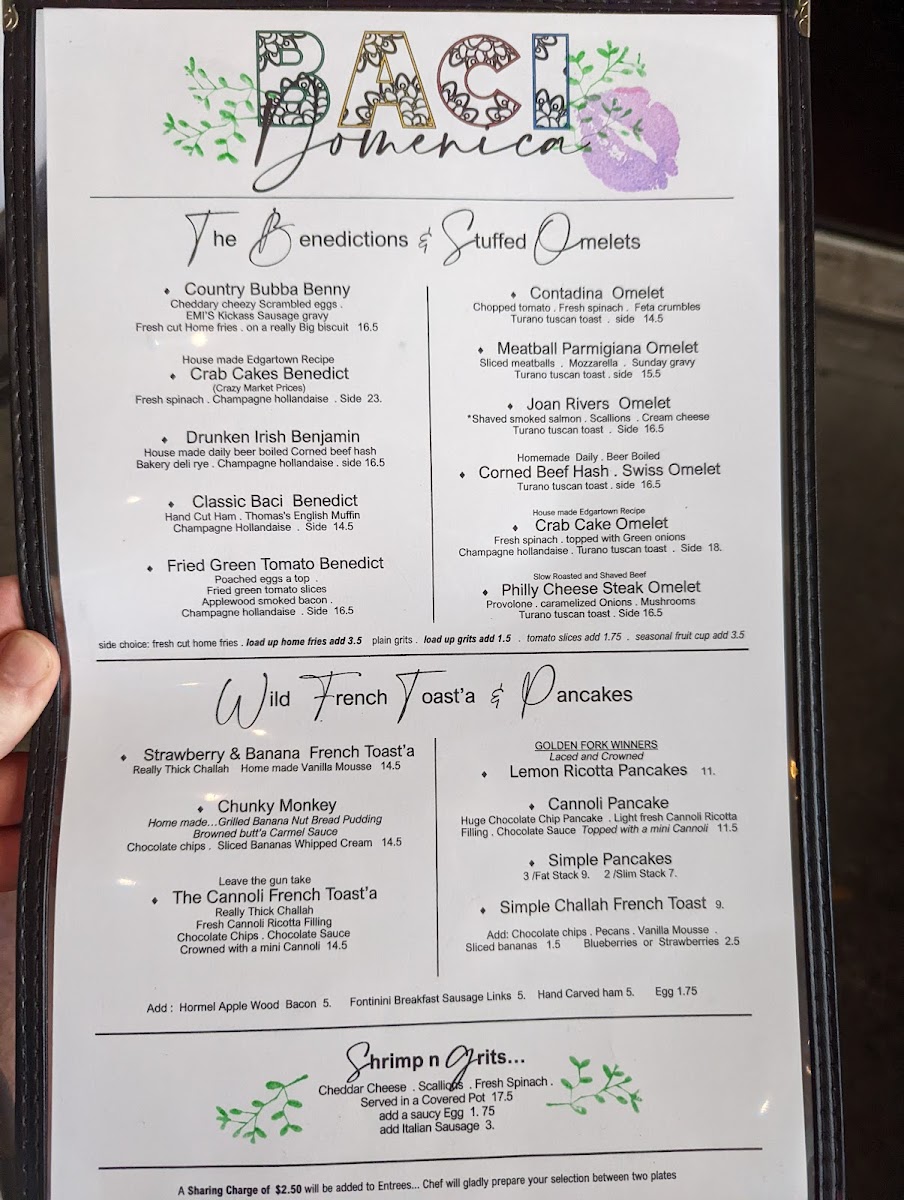 BACI
Domenica
The Benedictions & Stuffed Omelets
⬧ Country Bubba Benny
Cheddary cheezy Scrambled eggs .
EMI'S Kickass Sausage gravy
Fresh cut Home fries . on a really Big biscuit 16.5
House made Edgartown Recipe
⬧ Crab Cakes Benedict
(Crazy Market Prices)
Fresh spinach . Champagne hollandaise . Side 23.
⬧ Drunken Irish Benjamin
House made daily beer boiled Corned beef hash
Bakery deli rye . Champagne hollandaise . side 16.5
⬧ Classic Baci Benedict
Hand Cut Ham . Thomas's English Muffin
Champagne Hollandaise . Side 14.5
⬧ Fried Green Tomato Benedict
Poached eggs a top .
Fried green tomato slices
Applewood smoked bacon .
Champagne hollandaise . Side 16.5
⬧ Contadina Omelet
Chopped tomato . Fresh spinach . Feta crumbles
Turano tuscan toast . side 14.5
⬧ Meatball Parmigiana Omelet
Sliced meatballs . Mozzarella . Sunday gravy
Turano tuscan toast . side 15.5
⬧ Joan Rivers Omelet
*Shaved smoked salmon . Scallions . Cream cheese
Turano tuscan toast . Side 16.5
Homemade Daily . Beer Boiled
⬧ Corned Beef Hash . Swiss Omelet
Turano tuscan toast . side 16.5
House made Edgartown Recipe
⬧ Crab Cake Omelet
Fresh spinach . topped with Green onions
Champagne hollandaise . Turano tuscan toast . Side 18.
Slow Roasted and Shaved Beef
⬧ Philly Cheese Steak Omelet
Provolone . caramelized Onions . Mushrooms
Turano tuscan toast . Side 16.5
side choice: fresh cut home fries . load up home fries add 3.5 plain grits . load up grits add 1.5 . tomato slices add 1.75 . seasonal fruit cup add 3.5
Wild French Toast'a & Pancakes
⬧ Strawberry & Banana French Toast'a
Really Thick Challah Home made Vanilla Mousse 14.5
⬧ Chunky Monkey
Home made...Grilled Banana Nut Bread Pudding
Browned butt'a Carmel Sauce
Chocolate chips . Sliced Bananas Whipped Cream 14.5
Leave the gun take
⬧ The Cannoli French Toast'a
Really Thick Challah
Fresh Cannoli Ricotta Filling
Chocolate Chips . Chocolate Sauce
Crowned with a mini Cannoli 14.5
GOLDEN FORK WINNERS
Laced and Crowned
⬧ Lemon Ricotta Pancakes 11.
⬧ Cannoli Pancake
Huge Chocolate Chip Pancake . Light fresh Cannoli Ricotta
Filling . Chocolate Sauce Topped with a mini Cannoli 11.5
⬧ Simple Pancakes
3 /Fat Stack 9. 2 /Slim Stack 7.
⬧ Simple Challah French Toast 9.
Add: Chocolate chips . Pecans . Vanilla Mousse .
Sliced bananas 1.5 Blueberries or Strawberries 2.5
Add : Hormel Apple Wood Bacon 5. Fontinini Breakfast Sausage Links 5. Hand Carved ham 5. Egg 1.75
Shrimp n Grits...
Cheddar Cheese . Scallions . Fresh Spinach .
Served in a Covered Pot 17.5
add a saucy Egg 1. 75
add Italian Sausage 3.
A Sharing Charge of $2.50 will be added to Entrees... Chef will gladly prepare your selection between two plates